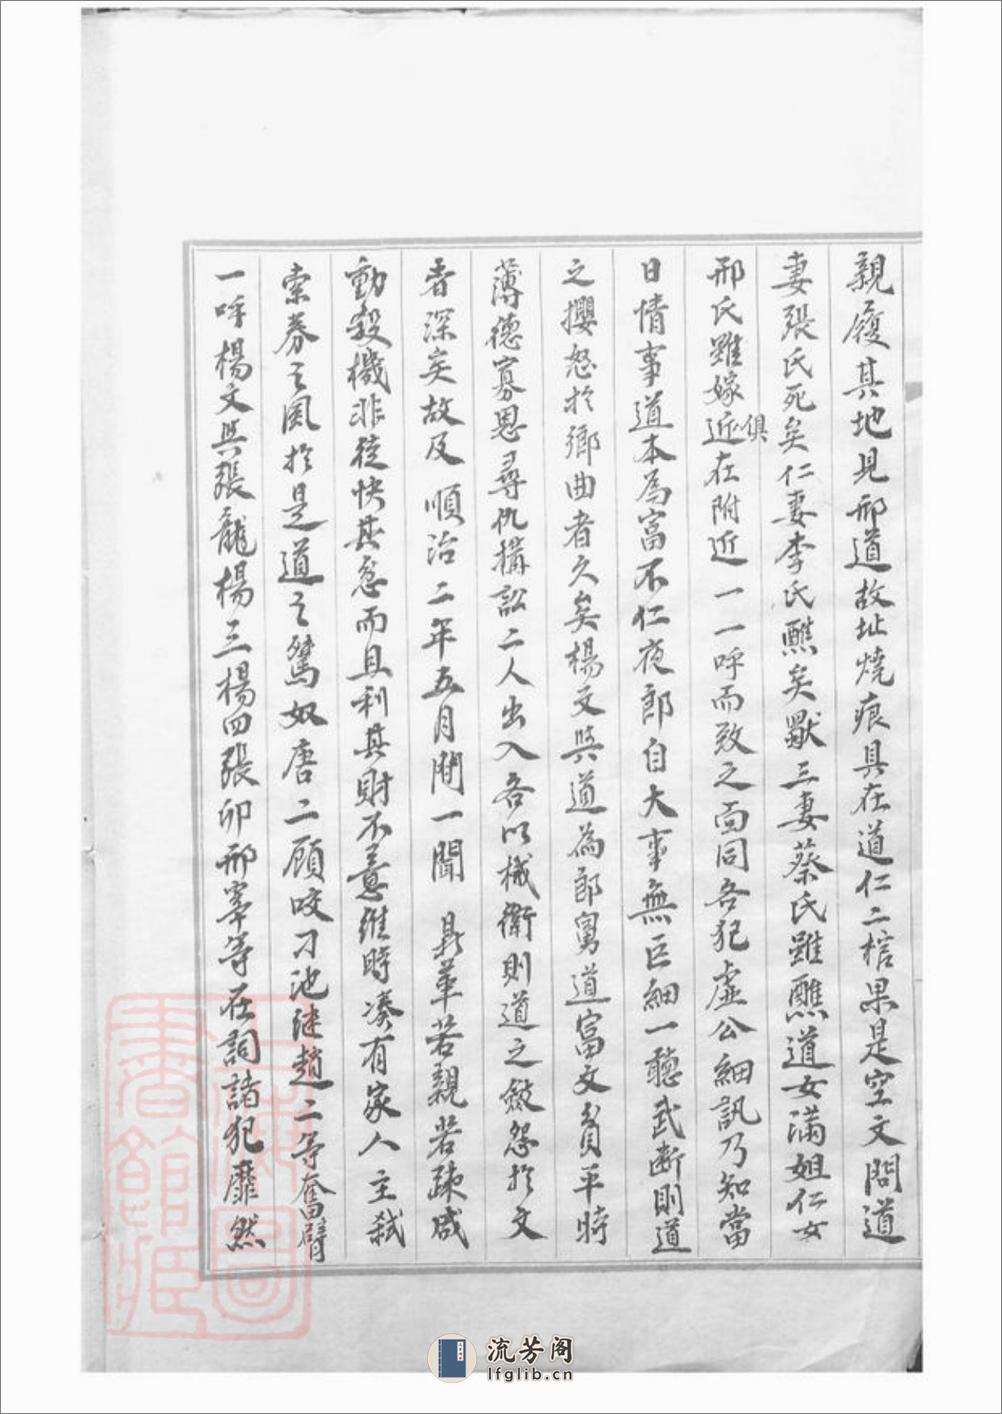 親履其地見邢道故址燒痕具在道仁二棺果是空文問道
妻張氏死矣仁妻李氏醮矣獸三妻蔡氏雖醮道女滿姐仁女
邢氏雖嫁近俱在附近一一呼而致之面同各犯虛公細訊乃知當
日情事道本為富不仁夜郎自大事無巨細一聽武斷則道
之攖怒於鄉曲者久矣楊文與道為郎舅道富文貧平時
薄德寡恩尋仇搆訟二人出入各以械衛則道之斂怨於文
者深矣故及順治二年五月間一聞鼎革若親若疎咸
動殺機非徒快其忿而且利其財不意維時湊有家人主弒
索券之風於是道之鷔奴唐二顧咬刁池繼趙二等奮臂
一呼楊文與張龍楊三楊四張卯邢寧等在詞諸犯靡然
流芳阁
lfglib.cn